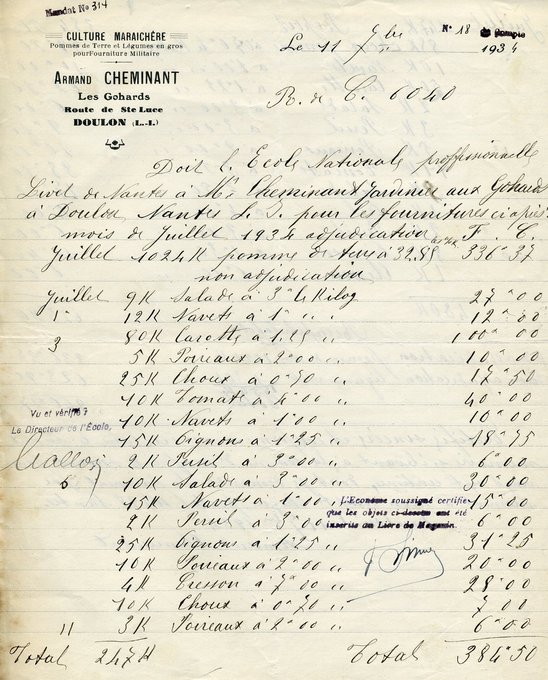 Mandat No 314
CULTURE MARAICHÈRE
Pommes de Terre et Légumes en gros
pour Fourniture Militaire
ARMAND CHEMINANT
Les Gohards
Route de Ste Luce
DOULON (L.-I.)
No 18
Le 11 7bre 1934
R. de C. 6040
Doit l'Ecole Nationale proffessionnelle
Livet de Nantes à Mr Cheminant Jardinier aux Gohards
à Doulon Nantes L. I. pour les fournitures ci après
mois de Juillet 1934 adjudication F. C.
Juillet 1024K pomme de terre à 32.85 336"37
non adjudication
Juillet 9K Salade à 3" le Kilog 27"00
1" 12K Navets à 1"00 " 12"00
3 80K Carotte à 1.25 " 100"00
5K Poireaux à 2"00 " 10"00
25K Choux à 0"70 " 17"50
10K Tomate à 4"00 " 40"00
Vu et vérifié
10K Navets à 1"00 " 10"00
Le Directeur de l'École,
15K Oignons à 1"25 " 18"75
2K Persil à 3"00 " 6"00
10K Salade à 3"00 " 30"00
15K Navets à 1"00 " 15"00
L'Econome soussigné certifie
que les objets ci-dessus ont été
inscrits au Livre de Magasin.
2K Persil à 3"00 6"00
25K Oignons à 1"25 " 31"25
10K Poireaux à 2"00 " 20"00
4K Cresson à 7"00 " 28"00
10K Choux à 0"70 " 7"00
11 3K Poireaux à 2"00 " 6"00
Total 247K Total 384"50